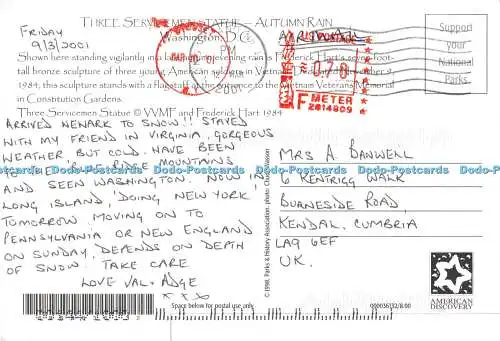 THREE SERVICEMEN STATUE — AUTUMN RAIN
Washington, D.C.
Friday
9/3/2001
Shown here standing vigilantly in a late evening rain is Frederick Hart's seven foot-
tall bronze sculpture of three young American soldiers in Vietnam.
1984, this sculpture stands with a flagstaff at the entrance to the Vietnam Veterans Memorial
in Constitution Gardens.
Three Servicemen Statue © WMF and Frederick Hart 1984
PM
2001
U.S. POSTAGE
0.70
F METER
2614809
Support
your
National
Parks
ARRIVED NEWARK TO SNOW!! STAYED
WITH MY FRIEND IN VIRGINIA, GORGEOUS
WEATHER, BUT COLD. HAVE BEEN
TO THE BLUE RIDGE MOUNTAINS
AND SEEN WASHINGTON. NOW IN
LONG ISLAND, 'DOING NEW YORK',
TOMORROW, MOVING ON TO
PENNSYLVANIA OR NEW ENGLAND
ON SUNDAY, DEPENDS ON DEPTH
OF SNOW. TAKE CARE
LOVE VAL, ADGE
x x x
MRS A. BANWELL
6 KENTRIGG WALK
BURNESIDE ROAD,
KENDAL, CUMBRIA
LA9 6EF
UK.
© 1998, Parks & History Association, photo: Chuck Wasson
Space below for postal use only
000036132/8.00
AMERICAN
DISCOVERY
Dodo-Postcards